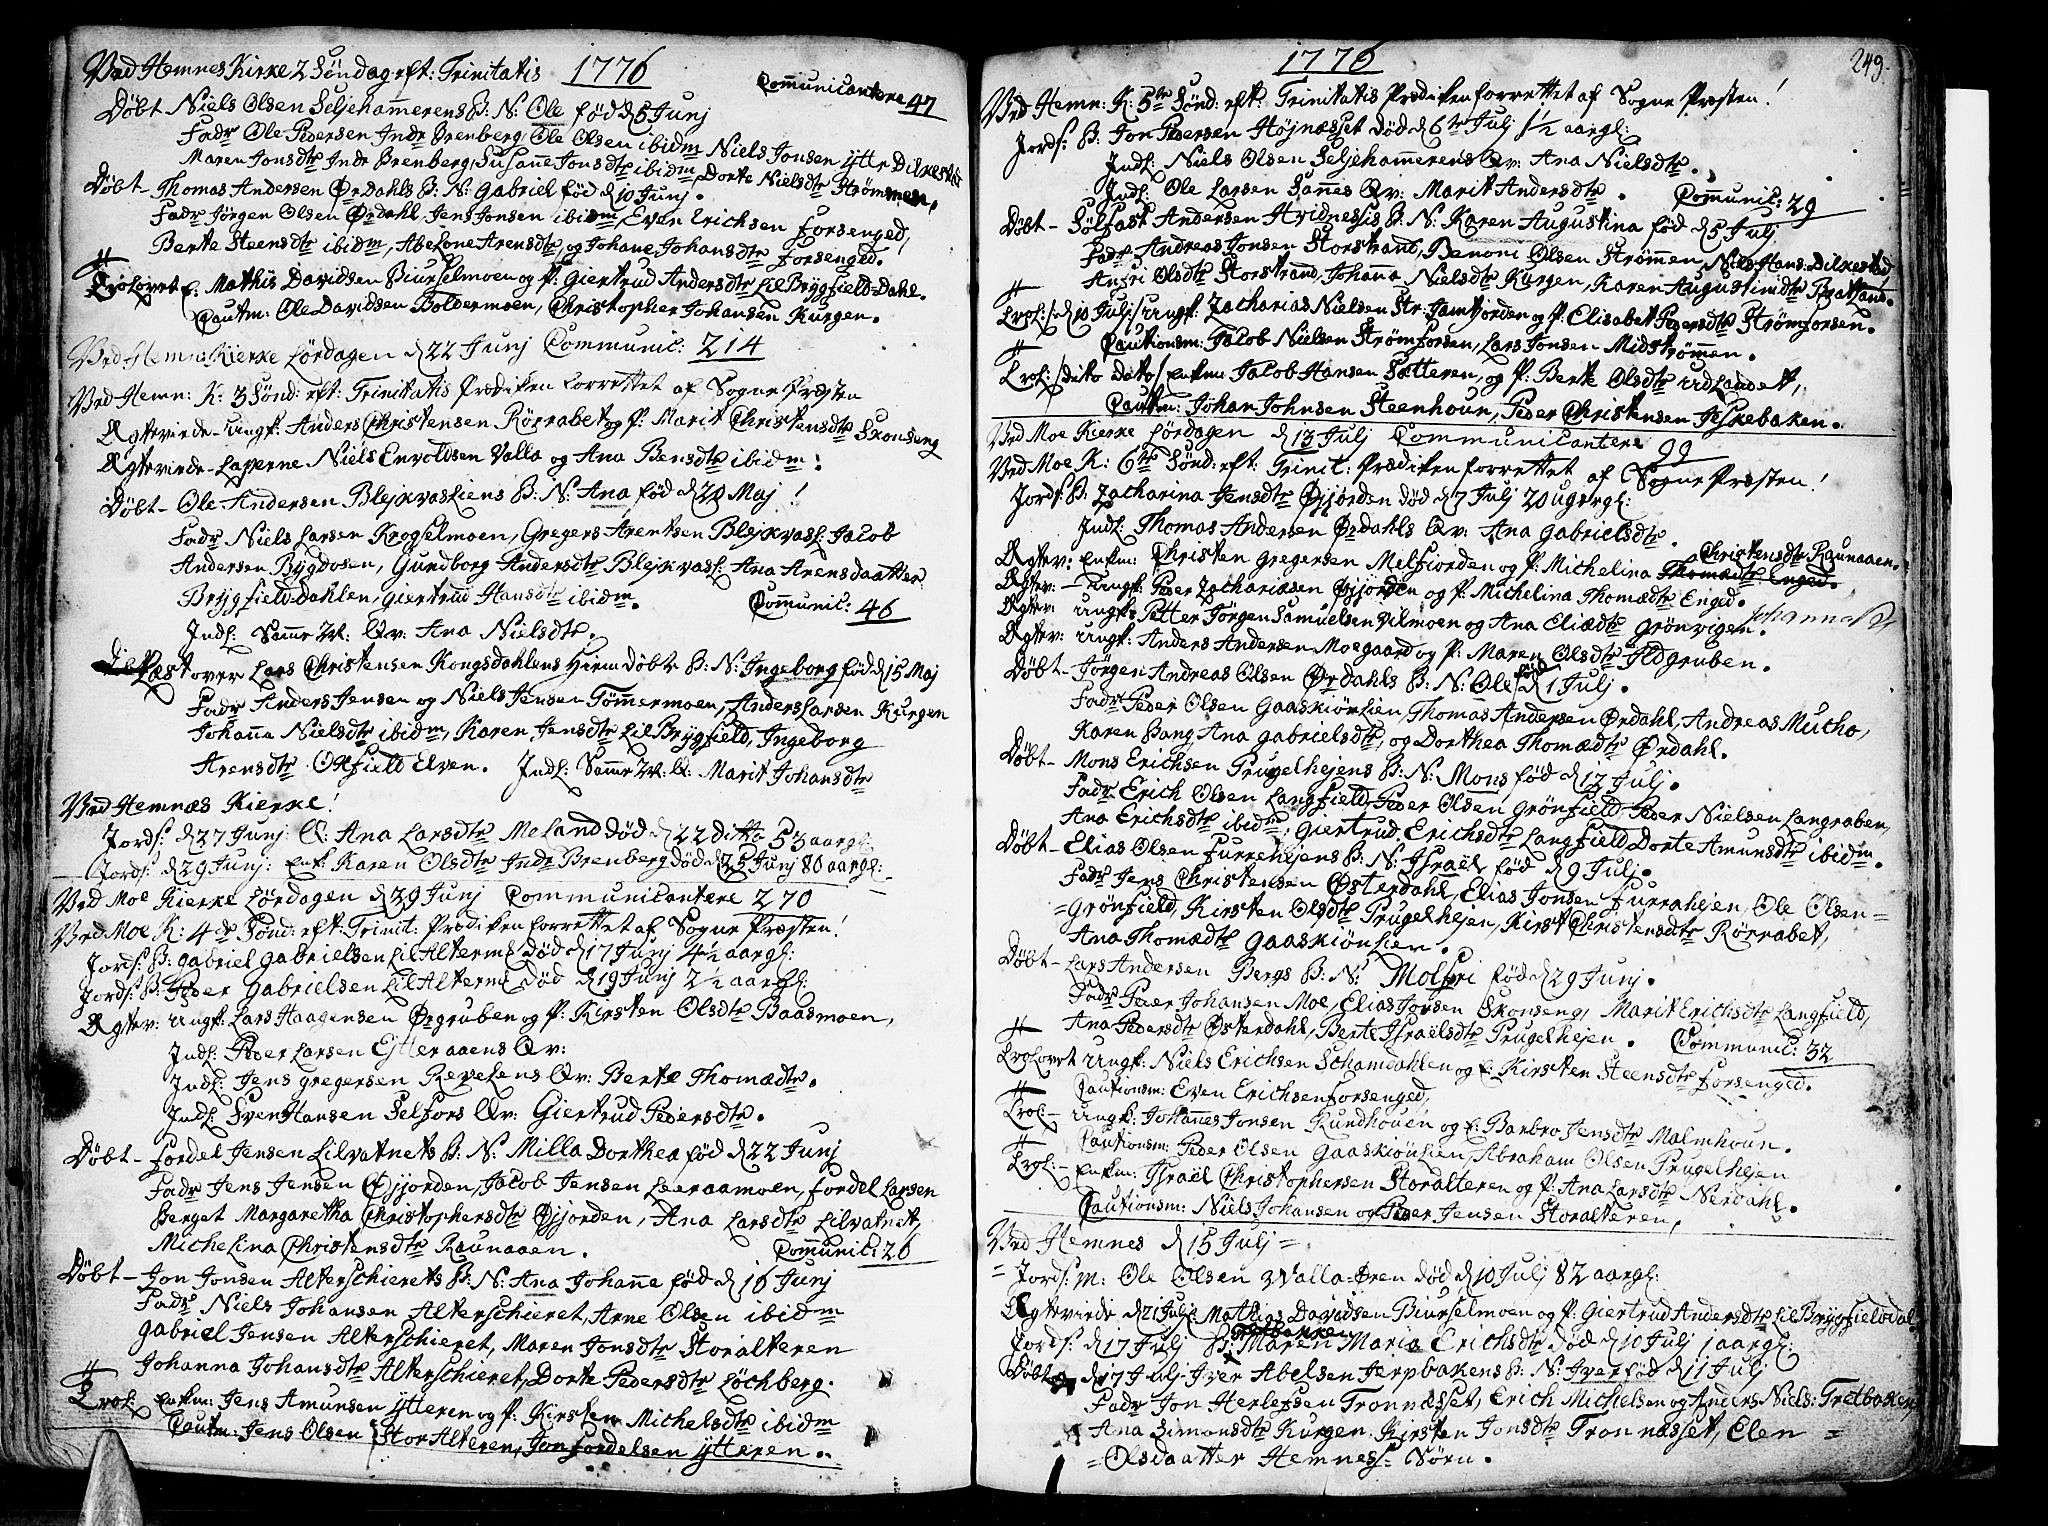 Ved Hemnes Kirke 2 Söndag eft: Trinitatis 1776
Communicantere 47
Döbt Niels Olsen Seljehamerens B: N: Ole fød d 5 Junj
Fadr Ole Pedersen Indr Brenberg, Ole Olsen ibidm Niels Jonsen yttr Dilkestad
Maren Jonsdtr Indr Brenberg, Susane Jonsdtr ibidm, Dorte Nielsdtr Strømmen,
Döbt - Thomas Andersen Ørdahls B: N: Gabriel fød d 10 Junj.
Fadr Jörgen Olsen Ørdahl, Jens Jonsen ibidm, Even Erichsen Forsenged,
Berte Steensdtr ibidm, Abelone Arensdtr, og Johane Johansdtr Forsenged.
Trolovet E: Mathis Davidsen Biurselmoen og P: Giertrud Andersdtr Lil Brygfield-Dahl.
Cautm: Ole Davidsen Boldermoen, Christopher Johansen Kurgen.
Ved Hemn: Kierke Lördagen d 22 Junj Communic: 214
Ved Hemn: K: 3 Sönd: eft: Trinitatis Prædiken forrettet af Sogne Præsten
Ægtevirde - ungk: Anders Christensen Rörrabet og P: Marit Christensdtr Skonseng
Ægtevirde - Laperne Niels Envoldsen Valla og Ana Bensdtr ibidm!
Döbt - Ole Andersen Blejkvasliens B: N: Ana fød d 20 Maj!
Fadr Niels Larsen Krogselmoen, Gregers Arentsen Blejkvasl: Jacob
Andersen Bygdosen, Gundborg Andersdtr Blejkvasl: Ana Arensdaatter
Brygfield-Dahlen, Giertrud Hansdtr ibidm.
Communic: 46
Indl: Samme M: Qv: Ana Nielsdtr.
Læst over Lars Christensen Kongsdahlens Hiem Döbt B: N: Ingeborg fød d 15 Maj
Fadr Anders Jensen og Niels Jensen Tömmermoen, Anders Larsen Kurgen
Johana Nielsdtr ibidm, Karen Jensdtr Lil Brygfield, Ingeborg
Arensdtr Oxfield Elven. Indl: Samme M: Q: Marit Johansdtr
Ved Hemnæs Kierke!
Jords: d 27 Junj: Q: Ana Larsdtr Meland död d 22 ditto 53 aargl:
Jords: d 29 Junj: Enk: Karen Olsdtr Indr Brenberg död d 25 Junj 80 aargl:
Ved Moe Kierke Lördagen d 29 Junj Communicantere 270
Ved Moe K: 4de Sönd: eft: Trinit: Prædiken forrettet af Sogne Præsten!
Jords: B: Gabriel Gabrielsen Lil Alterne död d 17 Junj 4½ aargl:
Jords: B: Peder Gabrielsen Lil Alterne död d 19 Junj 2½ aargl:
Ægtev: ungk: Lars Haagensen Ørgruben og P: Kirsten Olsdtr Baasmoen,
Indl: Peder Larsen Ejtteraaens Qv:
Indl: Jens Gregersen Revelens Qv: Berte Thomædtr.
Indl: Sven Hansen Selfors Qv: Giertrud Pedersdtr.
Döbt - Fordel Jensen Lilvatnets B: N: Milla Dorthea fød d 22 Junj
Fadr Jens Jensen Øjjorden, Jacob Jensen Leeraamoen, Fordel Larsen
Berget Margaretha Christophersdtr Øjjorden, Ana Larsdtr Lilvatnet,
Michelina Christensdtr Raunaaen. Communic: 26
Döbt - Jon Jonsen Alterschierets B: N: Ana Johane fød d 16 Junj
Fadr Niels Johansen Alterschieret, Arne Olsen ibidm
Gabriel Jensen Alterschieret, Maren Jonsdtr Storalteren
Johanna Johansdtr Alterschieret, Dorte Pedersdtr Löchberg.
Trol: Enkm: Jens Amunsen ytteren og P: Kirsten Michelsdtr ibidm
Cautm: Jens Olsen Stor Alteren, Jon Fordelsen ytteren.
1776 249.
Ved Hemn: K: 5te Sönd: eft: Trinitatis Prædiken forrettet af Sogne Præsten!
Jords: B: Jon Pedersen Höjnæsset död d 6te Julj 1½ aargl:
Indl: Niels Olsen Seljehamerens Qv: Ana Nielsdtr.
Indl: Ole Larsen Sannes Qv: Marit Andersdtr. Communic: 29
Döbt - Sölfast Andersen Hvidnessis B: N: Karen Augustina fød d 5 Julj
Fadr Andreas Jonsen Storstrand, Benoni Olsen Strömmen, Niels Hans: Dilkestad
Anfri Olsdtr Storstrand, Johana Nielsdtr Kurgen, Karen Augustinidtr Bratland.
Trol: / d 10 Julj / ungk: Zacharias Nielsen Str: Jamtjorden og P: Elisabet Pedersdtr Strömforsen.
Cautionsm: Jacob Nielsen Strömforsen, Lars Jonsen Midströmmen.
Trol: / dito dato / Enkm Jacob Hansen Sætteren, og P: Berte Olsdtr Udlandet,
Cautm: Johan Johnsen Steenhoun, Peder Christensen Jeskebaken.
Ved Moe Kierke Lördagen d 13 Julj Communicantere 99
Ved Moe K: 6te Sönd: eft: Trinit: Prædiken forrettet af Sogne Præsten!
Jords: B: Zacharina Jensdtr Øjjorden död d 7 Julj 20 ugergl:
Indl: Thomas Andersen Ørdahls Qv: Ana Gabrielsdtr.
Ægtev: Enkm: Christen Gregersen Melfiorden og P: Michelina Thomædtr Enged. Christensdtr Raunaaen.
Ægtev: - Ungk: Peder Zachariæsen Øjjorden og P: Michelina Thomædtr Enged.
Ægtev: ungk: Petter Jörgen Samuelsen Vilmoen og Ana Eliædtr Grönvigen. Johannes
Ægtev: ungk: Anders Andersen Moegaard og P: Maren Olsdtr Ildgruben.
Döbt - Jörgen Andreas Olsen Ørdahls B: N: Ole fød d 1 Julj.
Fadr Peder Olsen Gaaskiönlien Thomas Andersen Ørdahl, Andreas Mutho,
Karen Bang, Ana Gabrielsdtr, og Dorthea Thomædtr Ørdahl.
Döbt - Mons Erichsen Prugelhejens B: N: Mons fød d 12 Julj.
Fadr Erich Olsen Langfield, Peder Olsen Grönfield, Peder Nielsen Langraben,
Ana Erichsdtr ibidm, Giertrud Erichsdtr Langfield, Dorte Amunsdtr ibidm.
Döbt - Elias Olsen Furrehejens B: N: Israël fød d 9 Julj.
Fadr Jens Christensen Østerdahl, Elias Jonsen Furrahejen, Ole Olsen=
=Grönfield, Kirsten Olsdtr Prugelhejen, Kirst: Christensdtr Rörrabet,
Ana Thomædtr Gaaskiönlien.
Döbt - Lars Andersen Bergs B: N: Molfri fød d 29 Junj.
Fadr Peder Johansen Moe, Elias Jonsen Skonseng, Marit Erichsdtr Langfield,
Ana Pedersdtr Østerdahl, Berte Israëlsdtr Prugelhejen. Communic: 32
Trolovet Ungk: Niels Erichsen Schamdahlen og E: Kirsten Steensdtr Forsenged.
Cautionsm: Even Erichsen Forsenged,
Trol: - ungk: Johannes Jonsen Rundhouen og E: Barbro Jensdtr Malmhoun.
Cautionsm: Peder Olsen Gaaskiönlien, Abraham Olsen Prugelhejen
Trol: - Enkm: Israël Christophersen Storalteren og P: Ana Larsdtr Nerdahl.
Cautionsm: Niels Johansen og Peder Jensen Storalteren,
Ved Hemnes d 15 Julj =
= Jords: M: Ole Olsen Walla-Øren död d 10 Julj 82 aargl:
Ægtevirde d 21 Julj: Mathias Davidsen Biurselmoen og P: Giertrud Andersdtr Lil Brygfieldal.
Jords: d 17 Julj B: Maren Maria Erichsdtr död d 10 Julj 1 aargl:
Döbt d 17 Julj - Iver Abelsen Jerpbakens B: N: Iver fød d 11 Julj
Fadr Jon Herlefsen Tronnæsset, Erich Michelsen og Anders Niels: Tretbaken
Ana Simonsdtr Kurgen, Kirsten Jonsdtr Tronnæsset, Elen =
= Olsdaatter Hemness: Sörn.